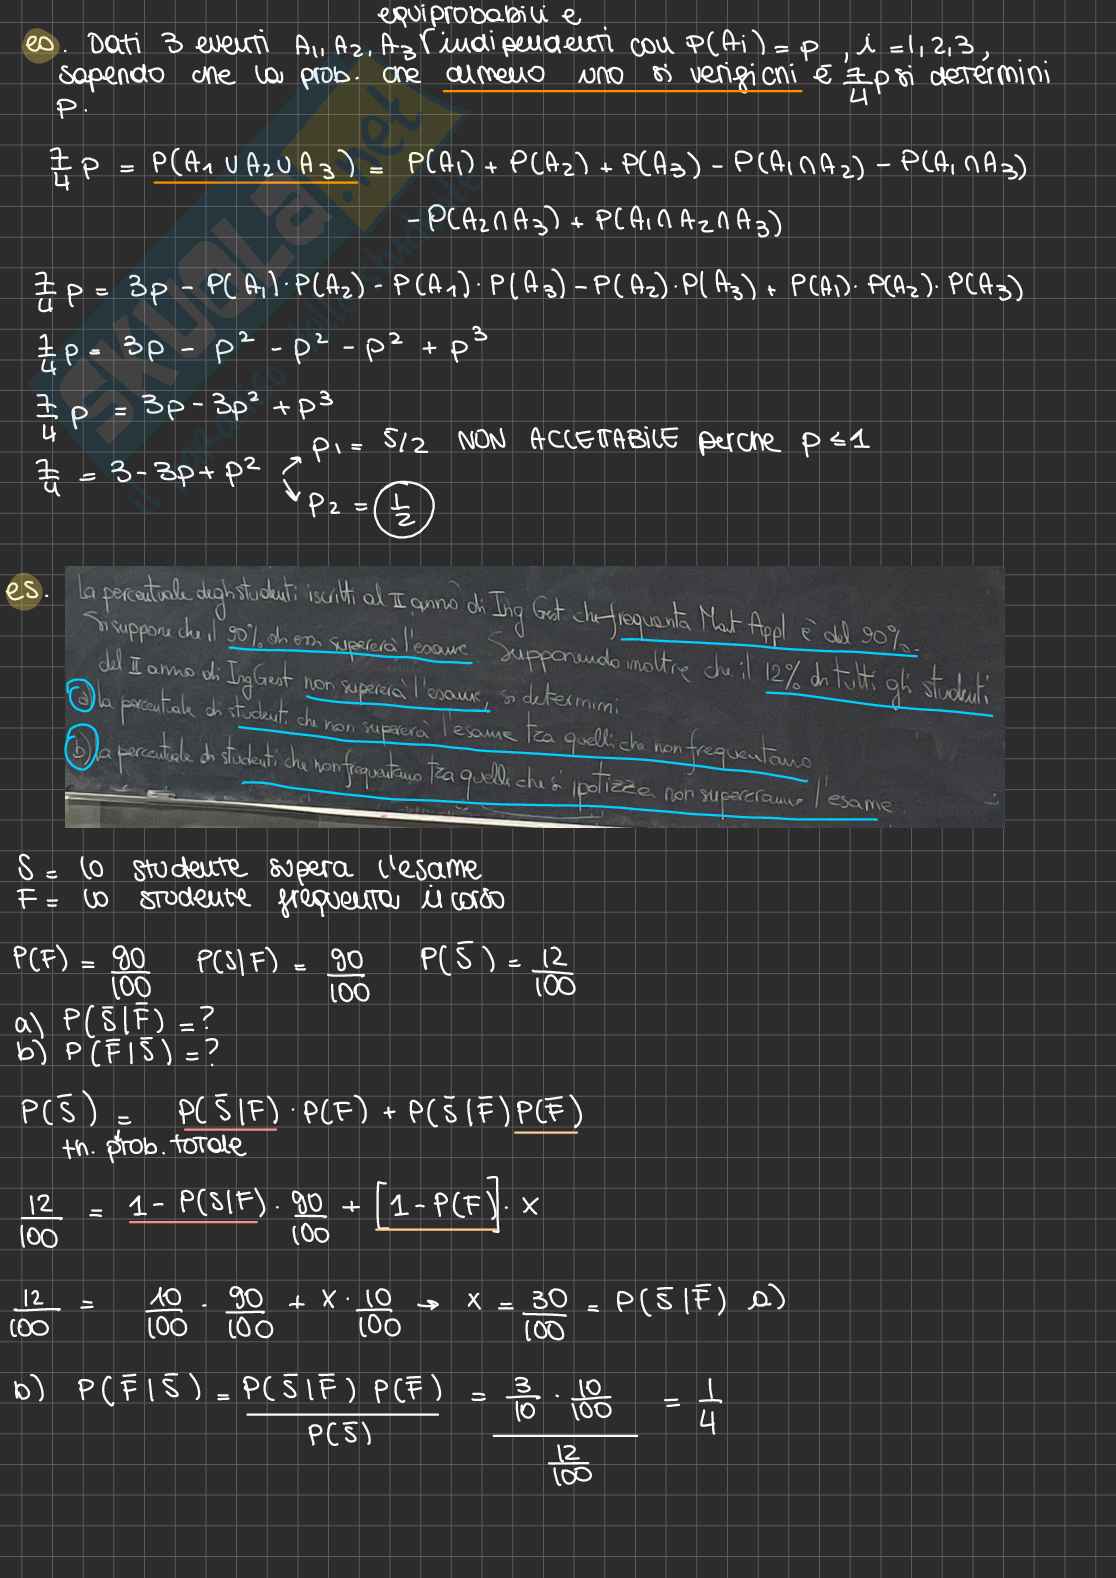 equiprobabili e
es. Dati 3 eventi A₁, A₂, A₃ indipendenti con P(Ai) = p , i = 1,2,3,
sapendo che la prob. che almeno uno si verifichi è 7/4 p si determini
p.
7/4 p = P(A₁ ∪ A₂ ∪ A₃) = P(A₁) + P(A₂) + P(A₃) - P(A₁∩A₂) - P(A₁∩A₃)
- P(A₂∩A₃) + P(A₁∩A₂∩A₃)
7/4 p = 3p - P(A₁)·P(A₂) - P(A₁)·P(A₃) - P(A₂)·P(A₃) + P(A₁)·P(A₂)·P(A₃)
7/4 p = 3p - p² - p² - p² + p³
7/4 p = 3p - 3p² + p³
p₁ = 5/2 NON ACCETTABILE perche p ≤ 1
7/4 = 3 - 3p + p²
p₂ = 1/2
es.
La percentuale degli studenti iscritti al II anno di Ing Gest che frequenta Mat Appl è del 90%.
Si suppone che il 90% di essi supererà l'esame. Supponendo inoltre che il 12% di tutti gli studenti
del II anno di Ing Gest non supererà l'esame, si determini
a) la percentuale di studenti che non supererà l'esame tra quelli che non frequentano
b) la percentuale di studenti che non frequentano tra quelli che si ipotizza non supereranno l'esame
S = lo studente supera l'esame
F = lo studente frequenta il corso
P(F) = 90/100 P(S|F) = 90/100 P(S̄) = 12/100
a) P(S̄|F̄) = ?
b) P(F̄|S̄) = ?
P(S̄) = P(S̄|F)·P(F) + P(S̄|F̄)P(F̄)
th. prob. totale
12/100 = 1 - P(S|F) · 90/100 + [1 - P(F)] · x
12/100 = 10/100 · 90/100 + x · 10/100 → x = 30/100 = P(S̄|F̄) a)
b) P(F̄|S̄) = P(S̄|F̄) P(F̄) / P(S̄) = 3/10 · 10/100 / 12/100 = 1/4
SKUOLA.net